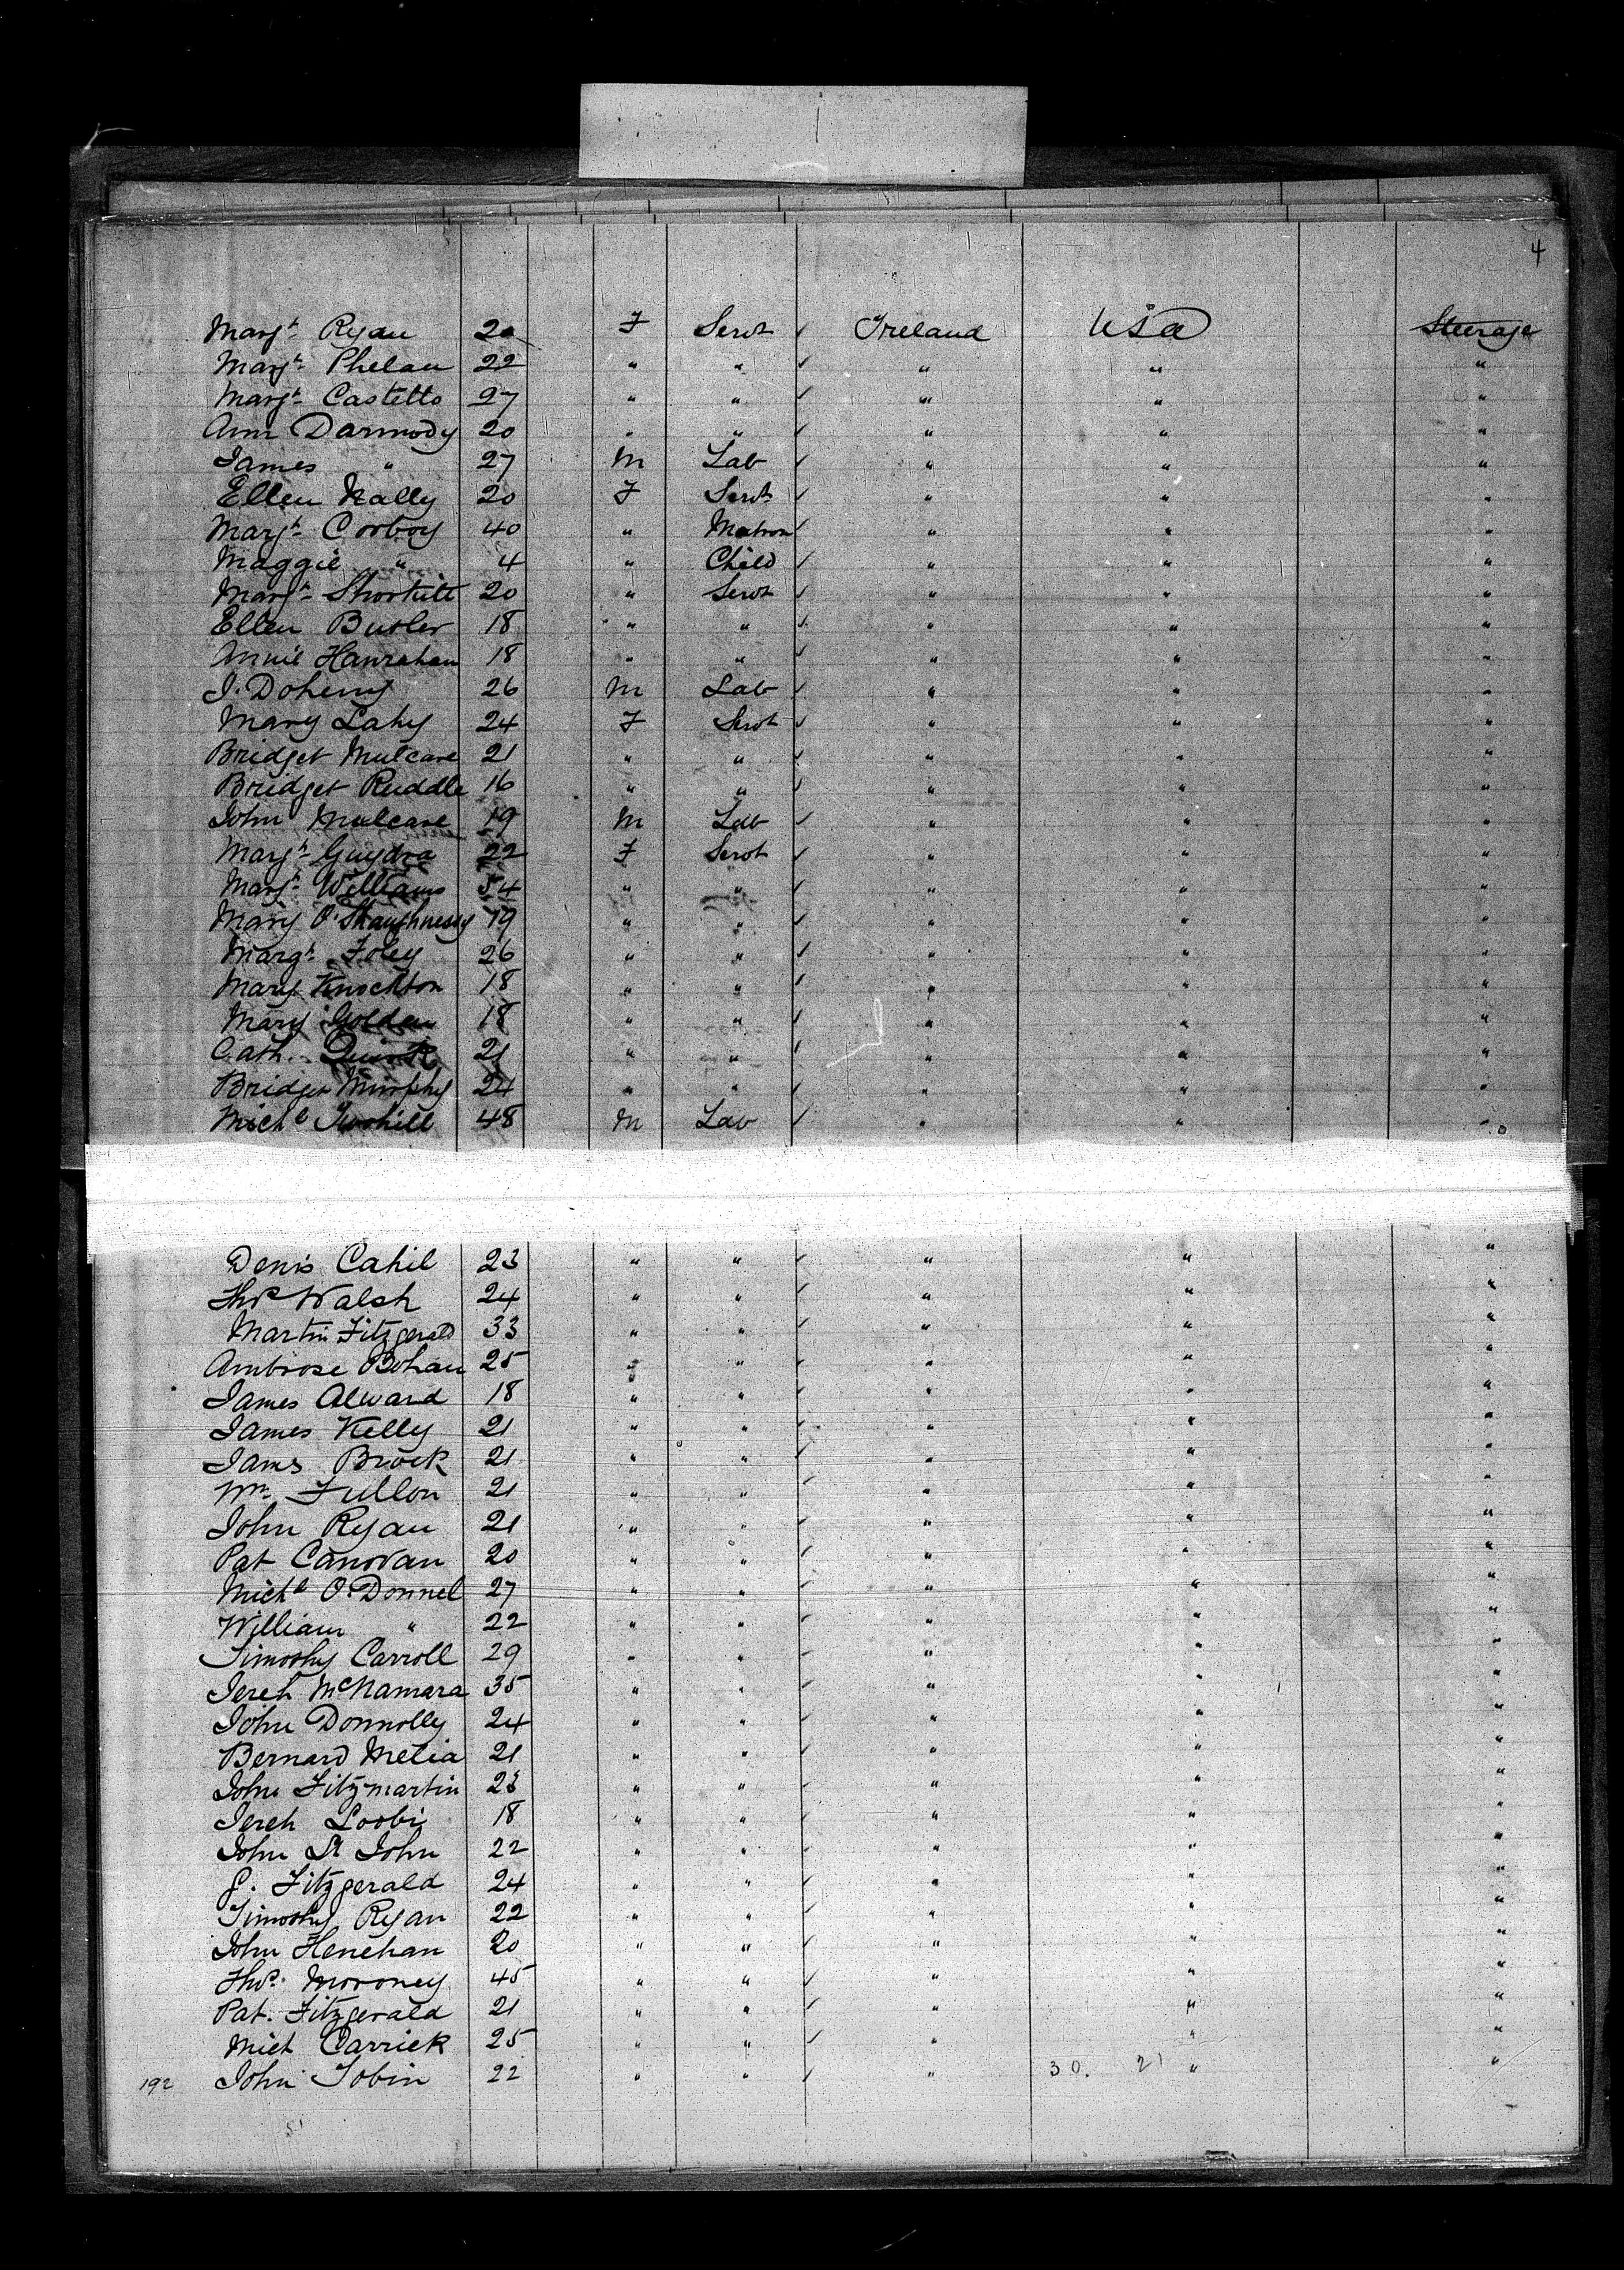 4
Margt. Ryan 20 F Servt Ireland USA Steerage
Margt. Phelan 22 " " " " "
Margt. Castello 27 " " " " "
Ann Darmody 20 " " " " "
James " 27 M Lab " " "
Ellen Nally 20 F Servt " " "
Margt. Corboy 40 " Matron " " "
Maggie " 4 " Child " " "
Margt. 20 " Servt " " "
Ellen Butler 18 " " " " "
Annie Hanrahan 18 " " " " "
J. Doheny 26 M Lab " " "
Mary Lahy 24 F Servt " " "
Bridget Mulcare 21 " " " " "
Bridget Ruddle 16 " " " " "
John Mulcare 19 M Lab " " "
Margt. 22 F Servt " " "
Margt. Williams 54 " " " " "
Mary O'Shaughnessy 19 " " " " "
Margt. Foley 26 " " " " "
Mary Knockton 18 " " " " "
Mary Golden 18 " " " " "
Cath. Quirk 21 " " " " "
Bridget Murphy 24 " " " " "
Michl Twohill 48 M Lab " " "
Denis Cahil 23 " " " " "
Thos Walsh 24 " " " " "
Martin Fitzgerald 33 " " " " "
Ambrose Bohan 25 " " " " "
James Alward 18 " " " " "
James Kelly 21 " " " " "
Jams Brock 21 " " " " "
Wm. Fullon 21 " " " " "
John Ryan 21 " " " " "
Pat Canovan 20 " " " " "
Michl O'Donnel 27 " " " " "
William " 22 " " " " "
Timothy Carroll 29 " " " " "
Jereh McNamara 35 " " " " "
John Donnolly 24 " " " " "
Bernard Melia 21 " " " " "
John Fitzmartin 23 " " " " "
Jereh Loobi 18 " " " " "
John St John 22 " " " " "
J. Fitzgerald 24 " " " " "
Timothy Ryan 22 " " " " "
John Henehan 20 " " " " "
Thos. Moroney 45 " " " " "
Pat. Fitzgerald 21 " " " " "
Mich Carrick 25 " " " " "
192 John Tobin 22 " " " 30. 21 " "